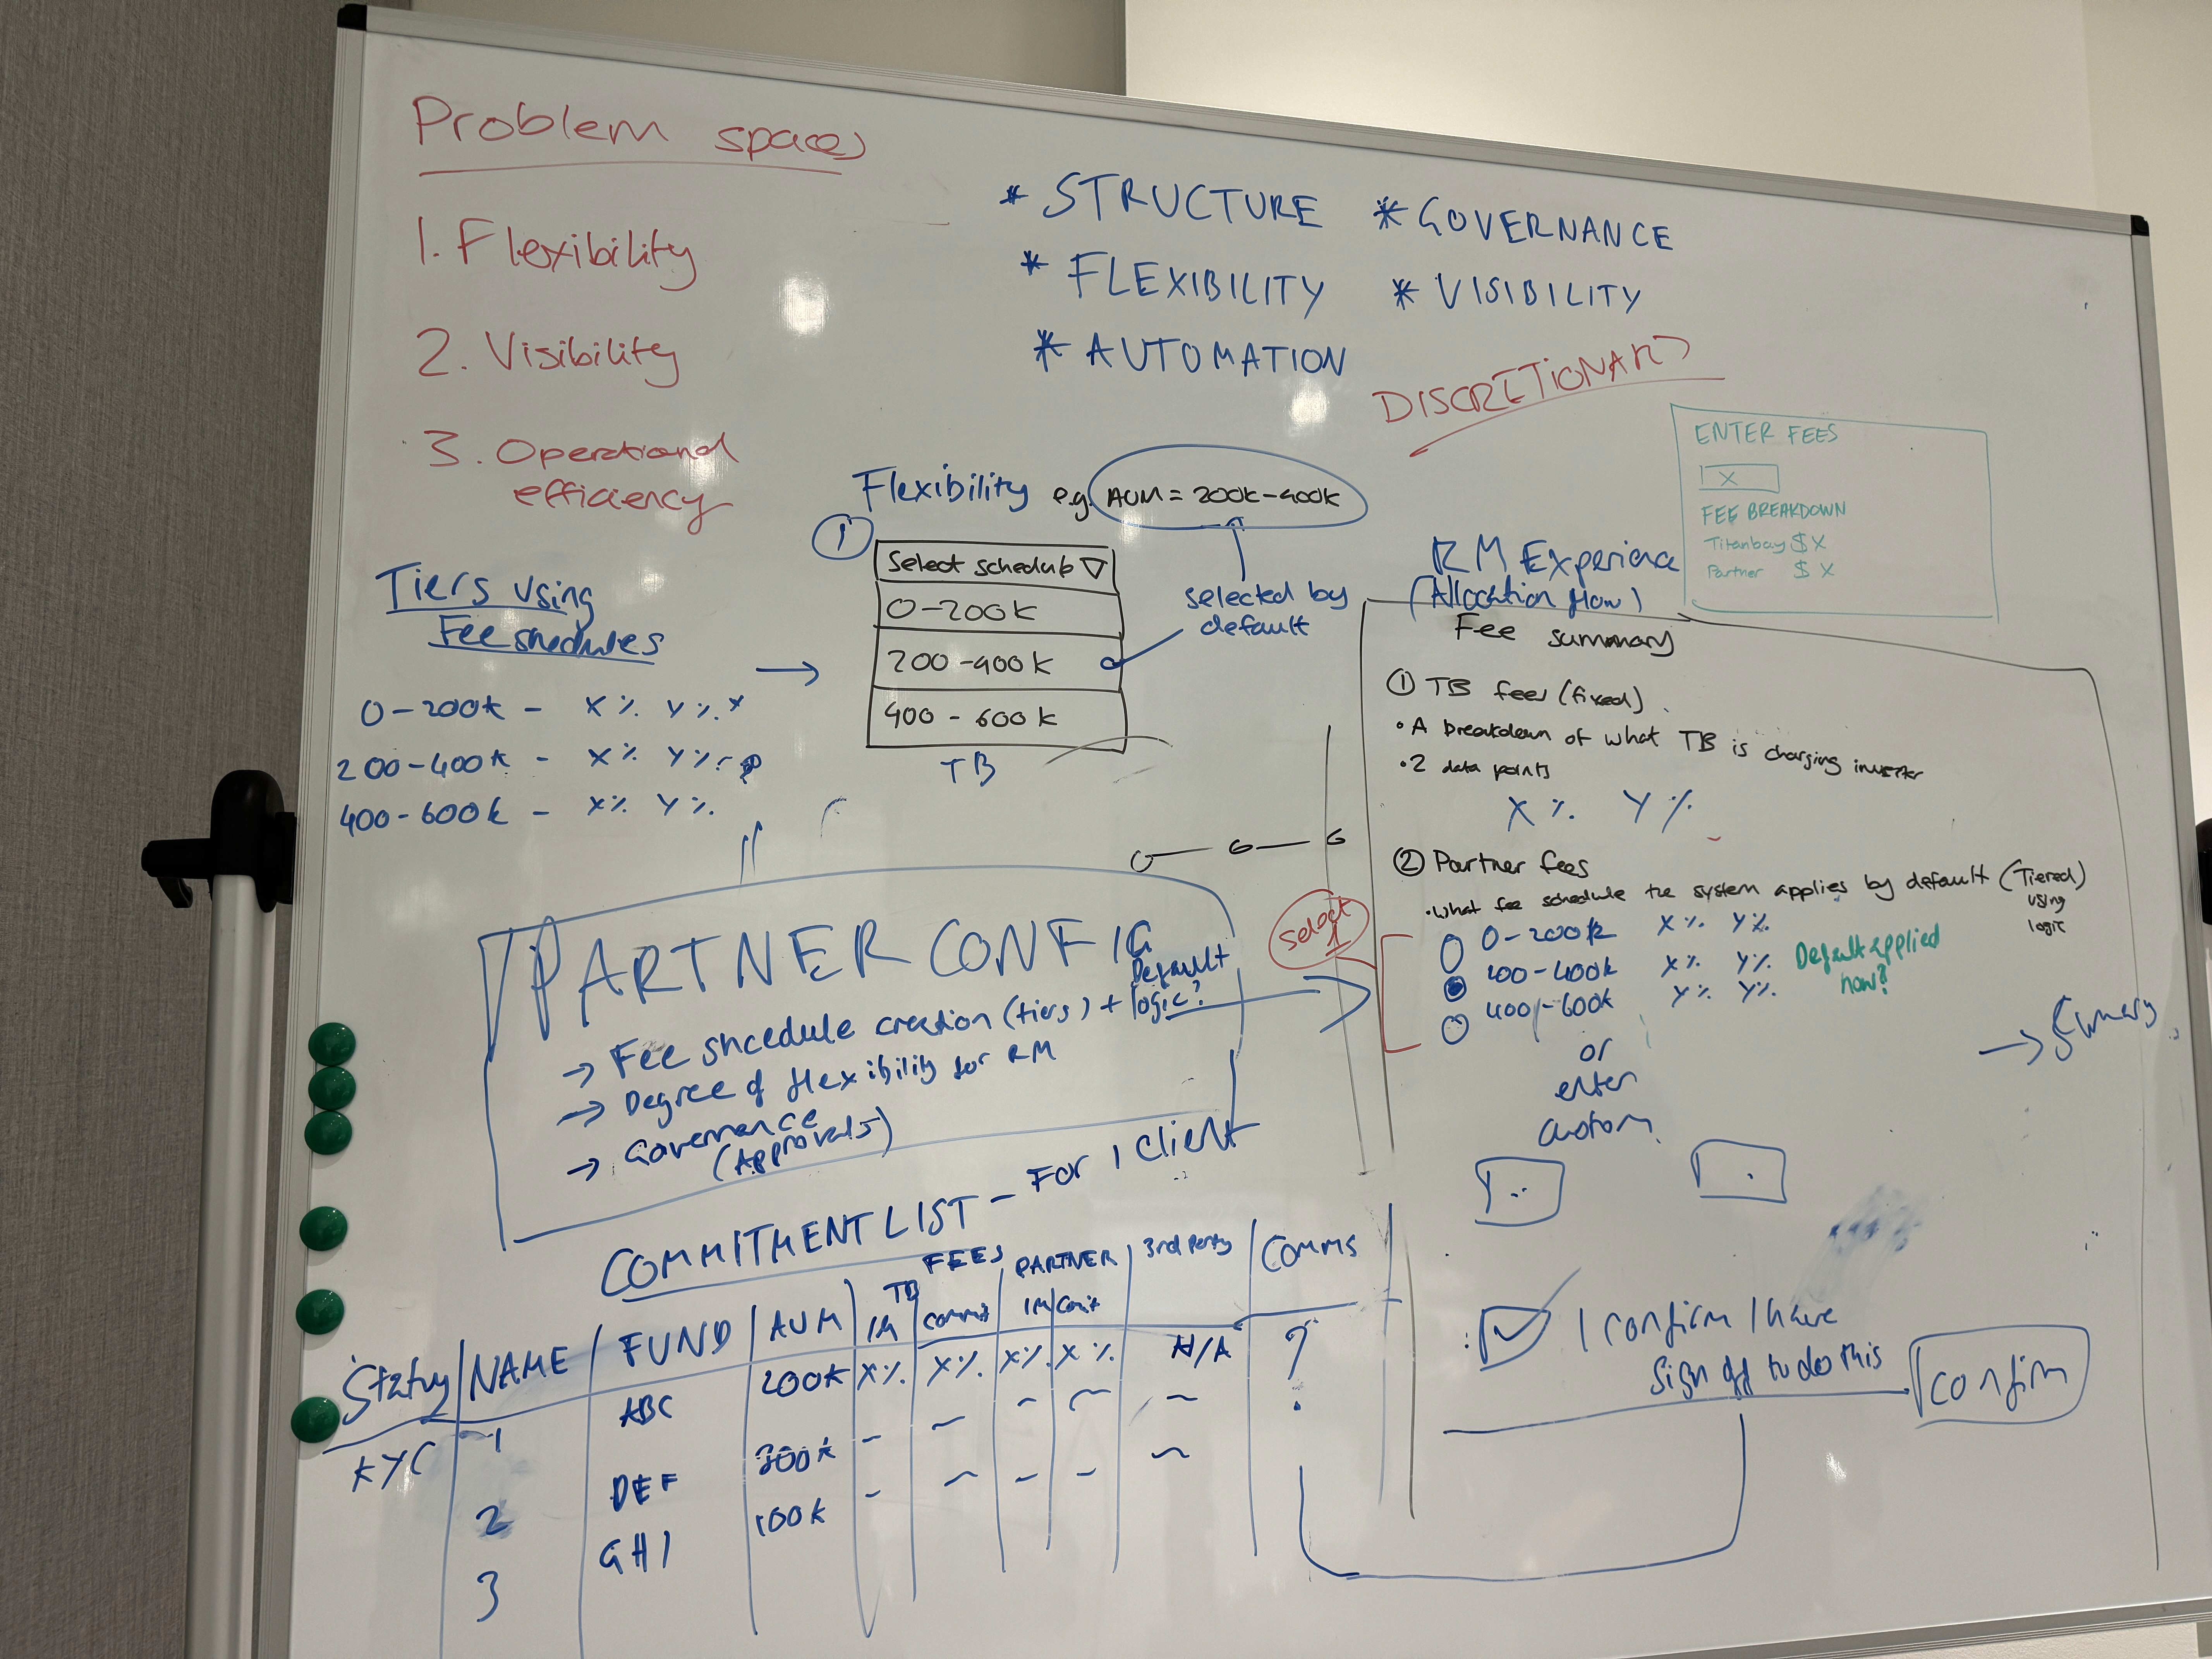 Problem spaces
1. Flexibility
2. Visibility
3. Operational
efficiency
* STRUCTURE * GOVERNANCE
* FLEXIBILITY * VISIBILITY
* AUTOMATION
DISCRETIONARY
ENTER FEES
X
FEE BREAKDOWN
Titanbay $ X
Partner $ X
Tiers using
Fee shedules
0-200k - X% Y% x
200-400k - X% Y%
400-600k - X% Y%
Flexibility e.g. AUM = 200k-400k
1
Select schedule ▽
0-200k
200-400k
400-600k
TB
selected by
default
RM Experience
(Allocation flow)
Fee summary
① TB fees (fixed)
• A breakdown of what TB is charging investor
• 2 data points
X% Y%
② Partner fees
• What fee schedule the system applies by default (Tiered)
using
logic
select
1
0-200k X% Y%
200-400k X% Y%
400-600k Y% Y%
Default applied
now?
or
enter
custom
→ Summary
PARTNER CONFIG
→ Fee shcedule creation (tiers) + Default logic?
→ Degree of flexibility for RM
→ Governance
(Approvals)
COMMITMENT LIST - For 1 client
FEES
Status NAME FUND AUM TB PARTNER 3rd Party Comms
IM Commit IM Comit
KYC 1 ABC 200k X% X% X% X% N/A ?
2 DEF 300k - ~ - ~ ~
3 GHI 100k - ~ - - ~
I confirm I have
sign off to do this
Confirm